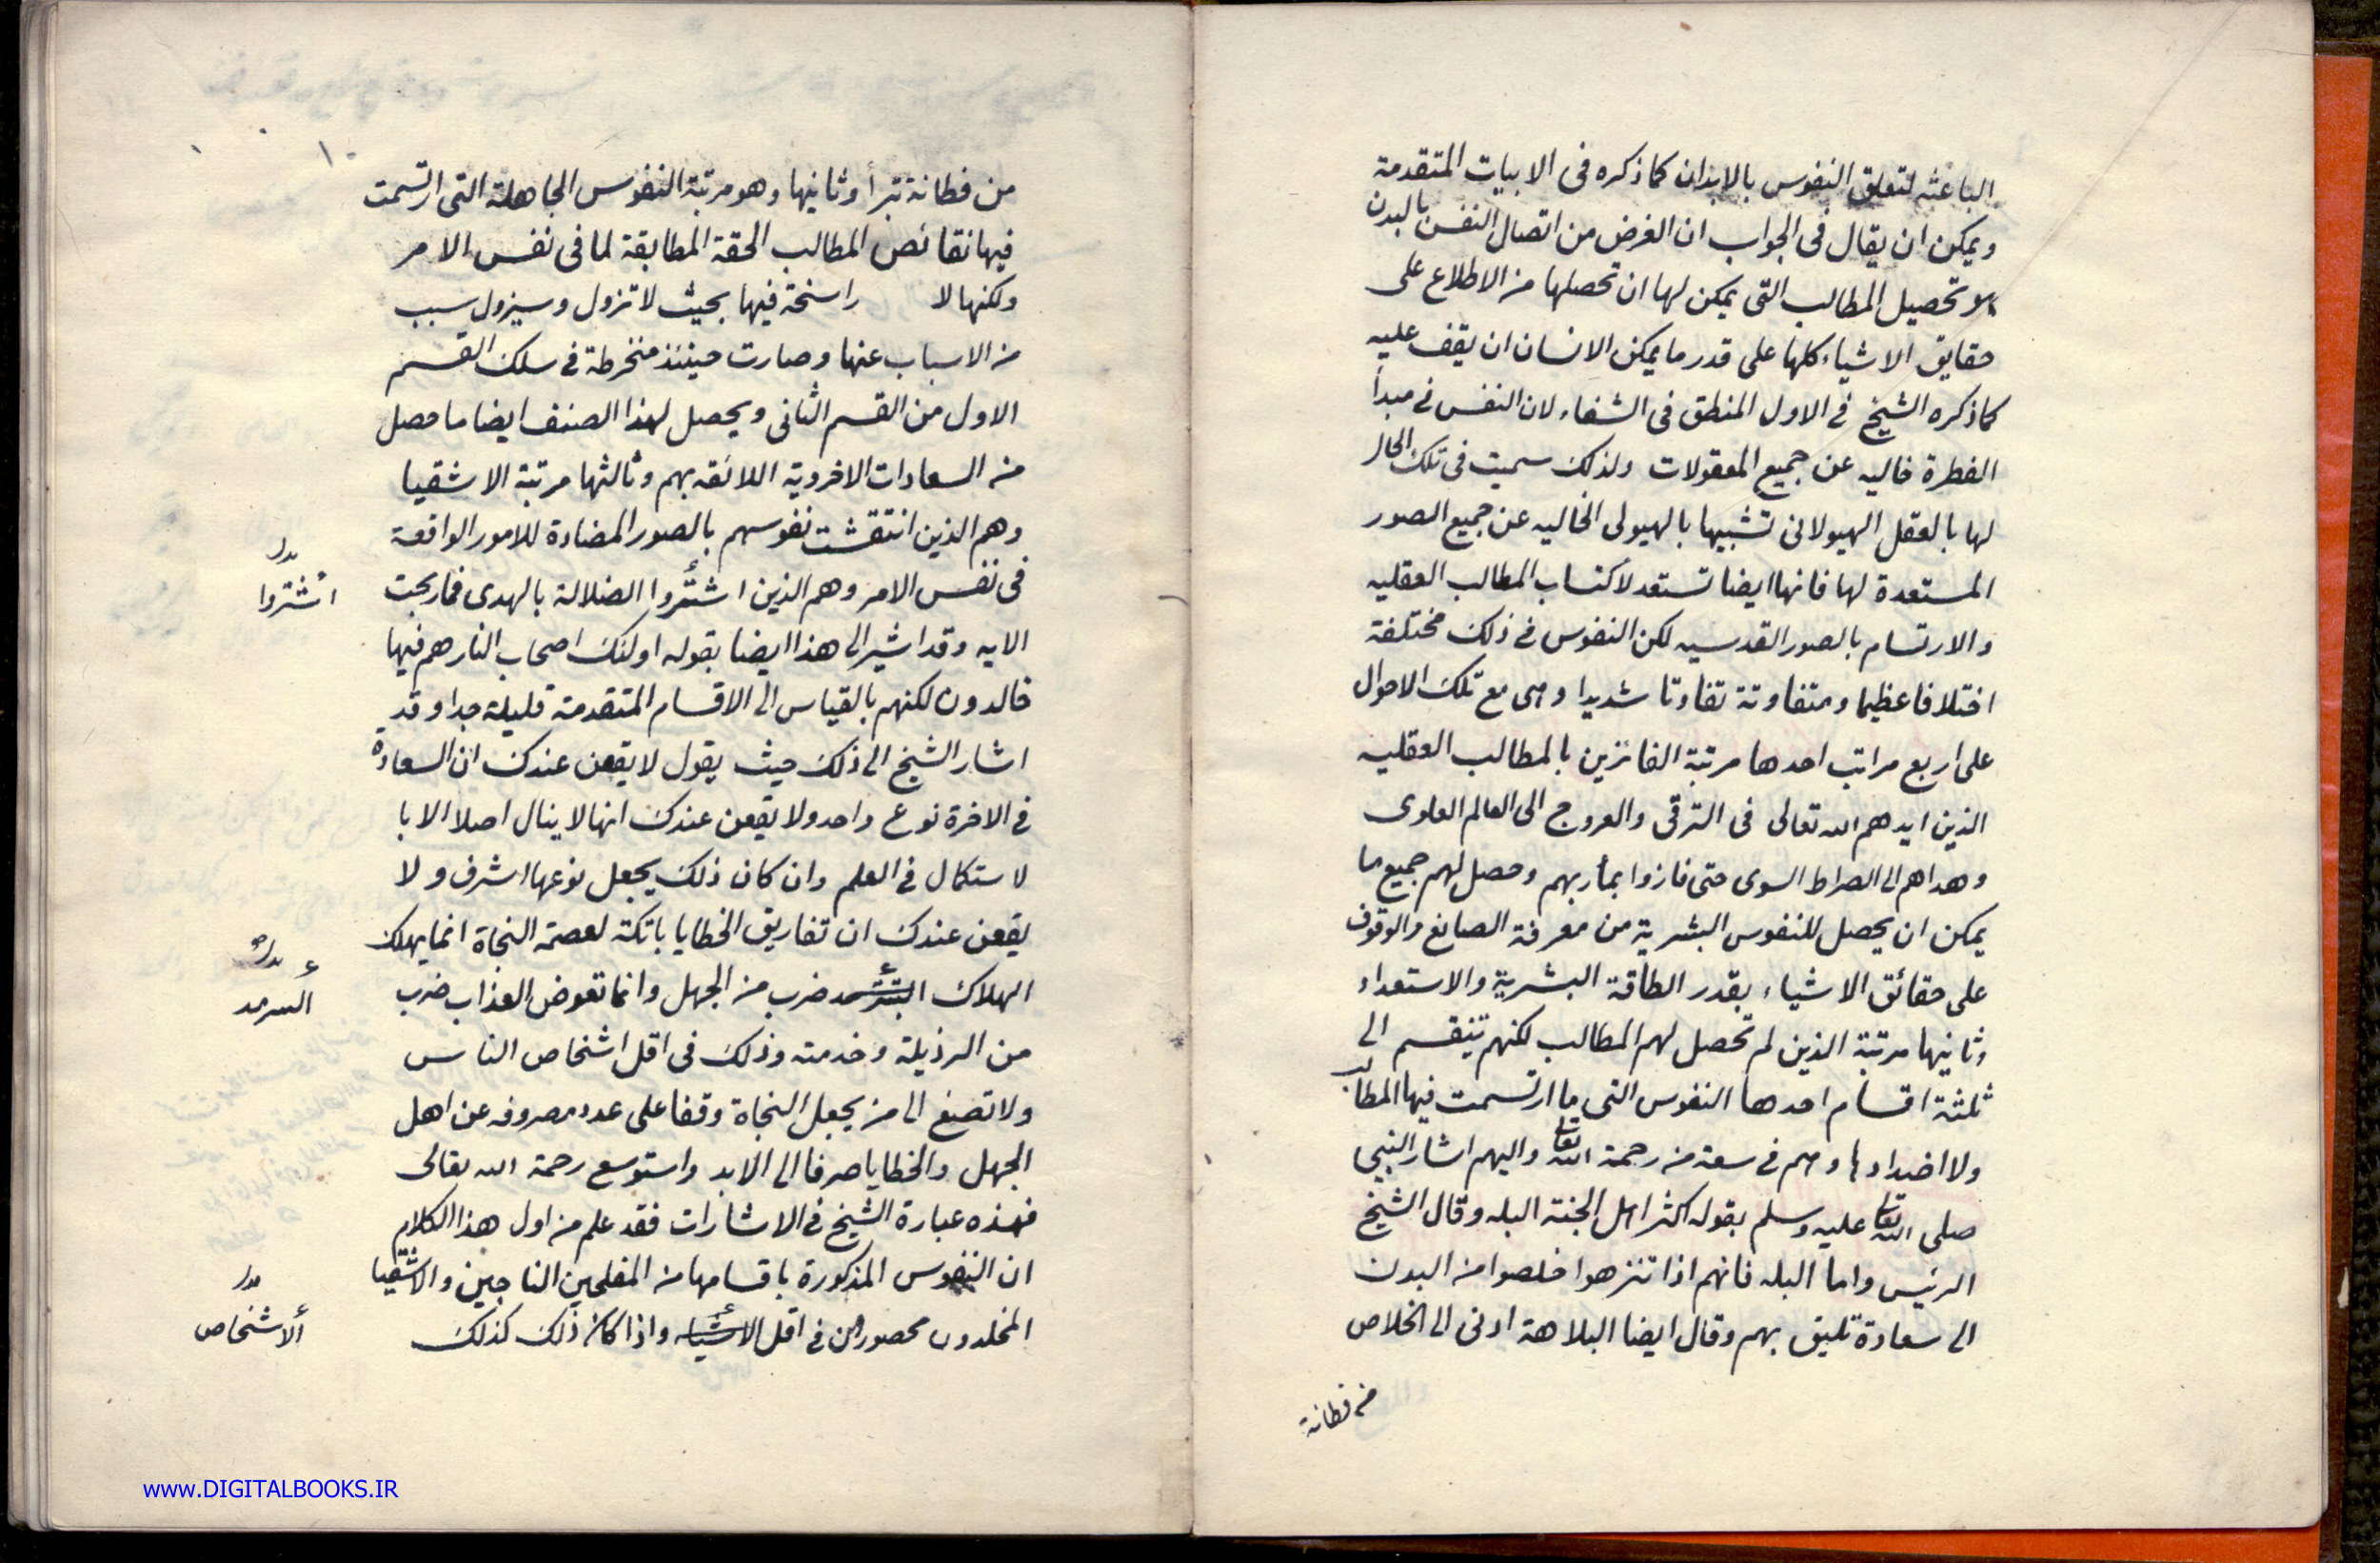 الباعثه لتعلق النفوس بالابدان كما ذكره فى الابيات المتقدمة
ويمكن ان يقال فى الجواب ان الغرض من اتصال النفس بالبدن
هو تحصيل المطالب التى يمكن لها ان تحصلها من الاطلاع على
حقايق الاشياء كلها على قدر ما يمكن الانسان ان يقف عليه
كما ذكره الشيخ فى الاول المنطق فى الشفاء لان النفس فى مبدأ
الفطرة خاليه عن جميع المعقولات ولذلك سميت فى تلك الحال
لها بالعقل الهيولانى تشبيها بالهيولى الخاليه عن جميع الصور
المستعدة لها فانها ايضا تستعد لأكتساب المطالب العقليه
والارتسام بالصور القدسيه لكن النفوس فى ذلك مختلفة
اختلافا عظيما ومتفاوتة تفاوتا شديدا وهى مع تلك الاحوال
على اربع مراتب احدها مرتبة الفائزين بالمطالب العقليه
الذين ايدهم الله تعالى فى الترقى والعروج الى العالم العلوى
وهداهم الى الصراط السوى حتى فازوا بمأربهم وحصل لهم جميع ما
يمكن ان يحصل للنفوس البشرية من معرفة الصانع والوقوف
على حقائق الاشياء بقدر الطاقة البشرية والاستعداد
وثانيها مرتبة الذين لم تحصل لهم المطالب لكنهم تنقسم الى
ثلثة اقسام احدها النفوس التى ما ارتسمت فيها المطالب
ولا اضدادها وهم فى سعة من رحمة الله تعالى واليهم اشار النبى
صلى الله تعالى عليه وسلم بقوله اكثر اهل الجنة البله وقال الشيخ
الرئيس واما البله فانهم اذا تنزهوا خلصوا من البدن
الى سعادة تليق بهم وقال ايضا البلاهة ادنى الى الخلاص
من فطانة
١٠
من فطانة تبرأ وثانيها وهو مرتبة النفوس الجاهلة التى ارتسمت
فيها نقائص المطالب الحقة المطابقة لما فى نفس الامر
ولكنها لا راسخة فيها بحيث لا تزول وسيزول سبب
من الاسباب عنها وصارت حينئذ منخرطة فى سلك القسم
الاول من القسم الثانى ويحصل لهذا الصنف ايضا ما حصل
من السعادات الاخروية اللائقه بهم وثالثها مرتبة الاشقيا
وهم الذين انتقشت نفوسهم بالصور المضادة للامور الواقعة
فى نفس الامر وهم الذين اشتروا الضلالة بالهدى فما ربحت
بدل
اشتروا
الايه وقد اشير الى هذا ايضا بقوله اولئك اصحاب النار هم فيها
خالدون لكنهم بالقياس الى الاقسام المتقدمة قليلة جدا وقد
اشار الشيخ الى ذلك حيث يقول لا يقعن عندك ان السعادة
فى الاخرة نوع واحد ولا يقعن عندك انها لا ينال اصلا الا با
لاستكمال فى العلم وان كان ذلك يجعل نوعها اشرف ولا
يقعن عندك ان تفاريق الخطايا باتكة لعصمة النجاة انما يهلك
الهلاك ضرب من الجهل وانما تعوض العذاب ضرب
بدل
السرمد
من الرذيلة وخدمته وذلك فى اقل اشخاص الناس
ولا تصغ الى من يجعل النجاة وقفا على عدد مصروفه عن اهل
الجهل والخطايا صرفا الى الابد واستوسع رحمة الله تعالى
فهذه عبارة الشيخ فى الاشارات فقد علم من اول هذا الكلام
ان النفوس المذكورة باقسامها من المفلحين الناجين والاشقيا
المخلدون محصورين فى اقل الاشياء واذا كان ذلك كذلك
بدل
الاشخاص
www.DIGITALBOOKS.IR